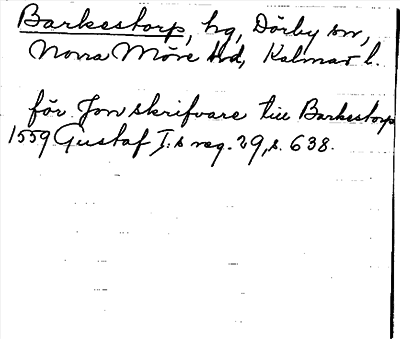 Barkestorp, hg, Dörby sn,
Norra Möre hd, Kalmar l.
för Jon skrifvare till Barkestorp
1559 Gustaf I:s reg. 29, s. 638.